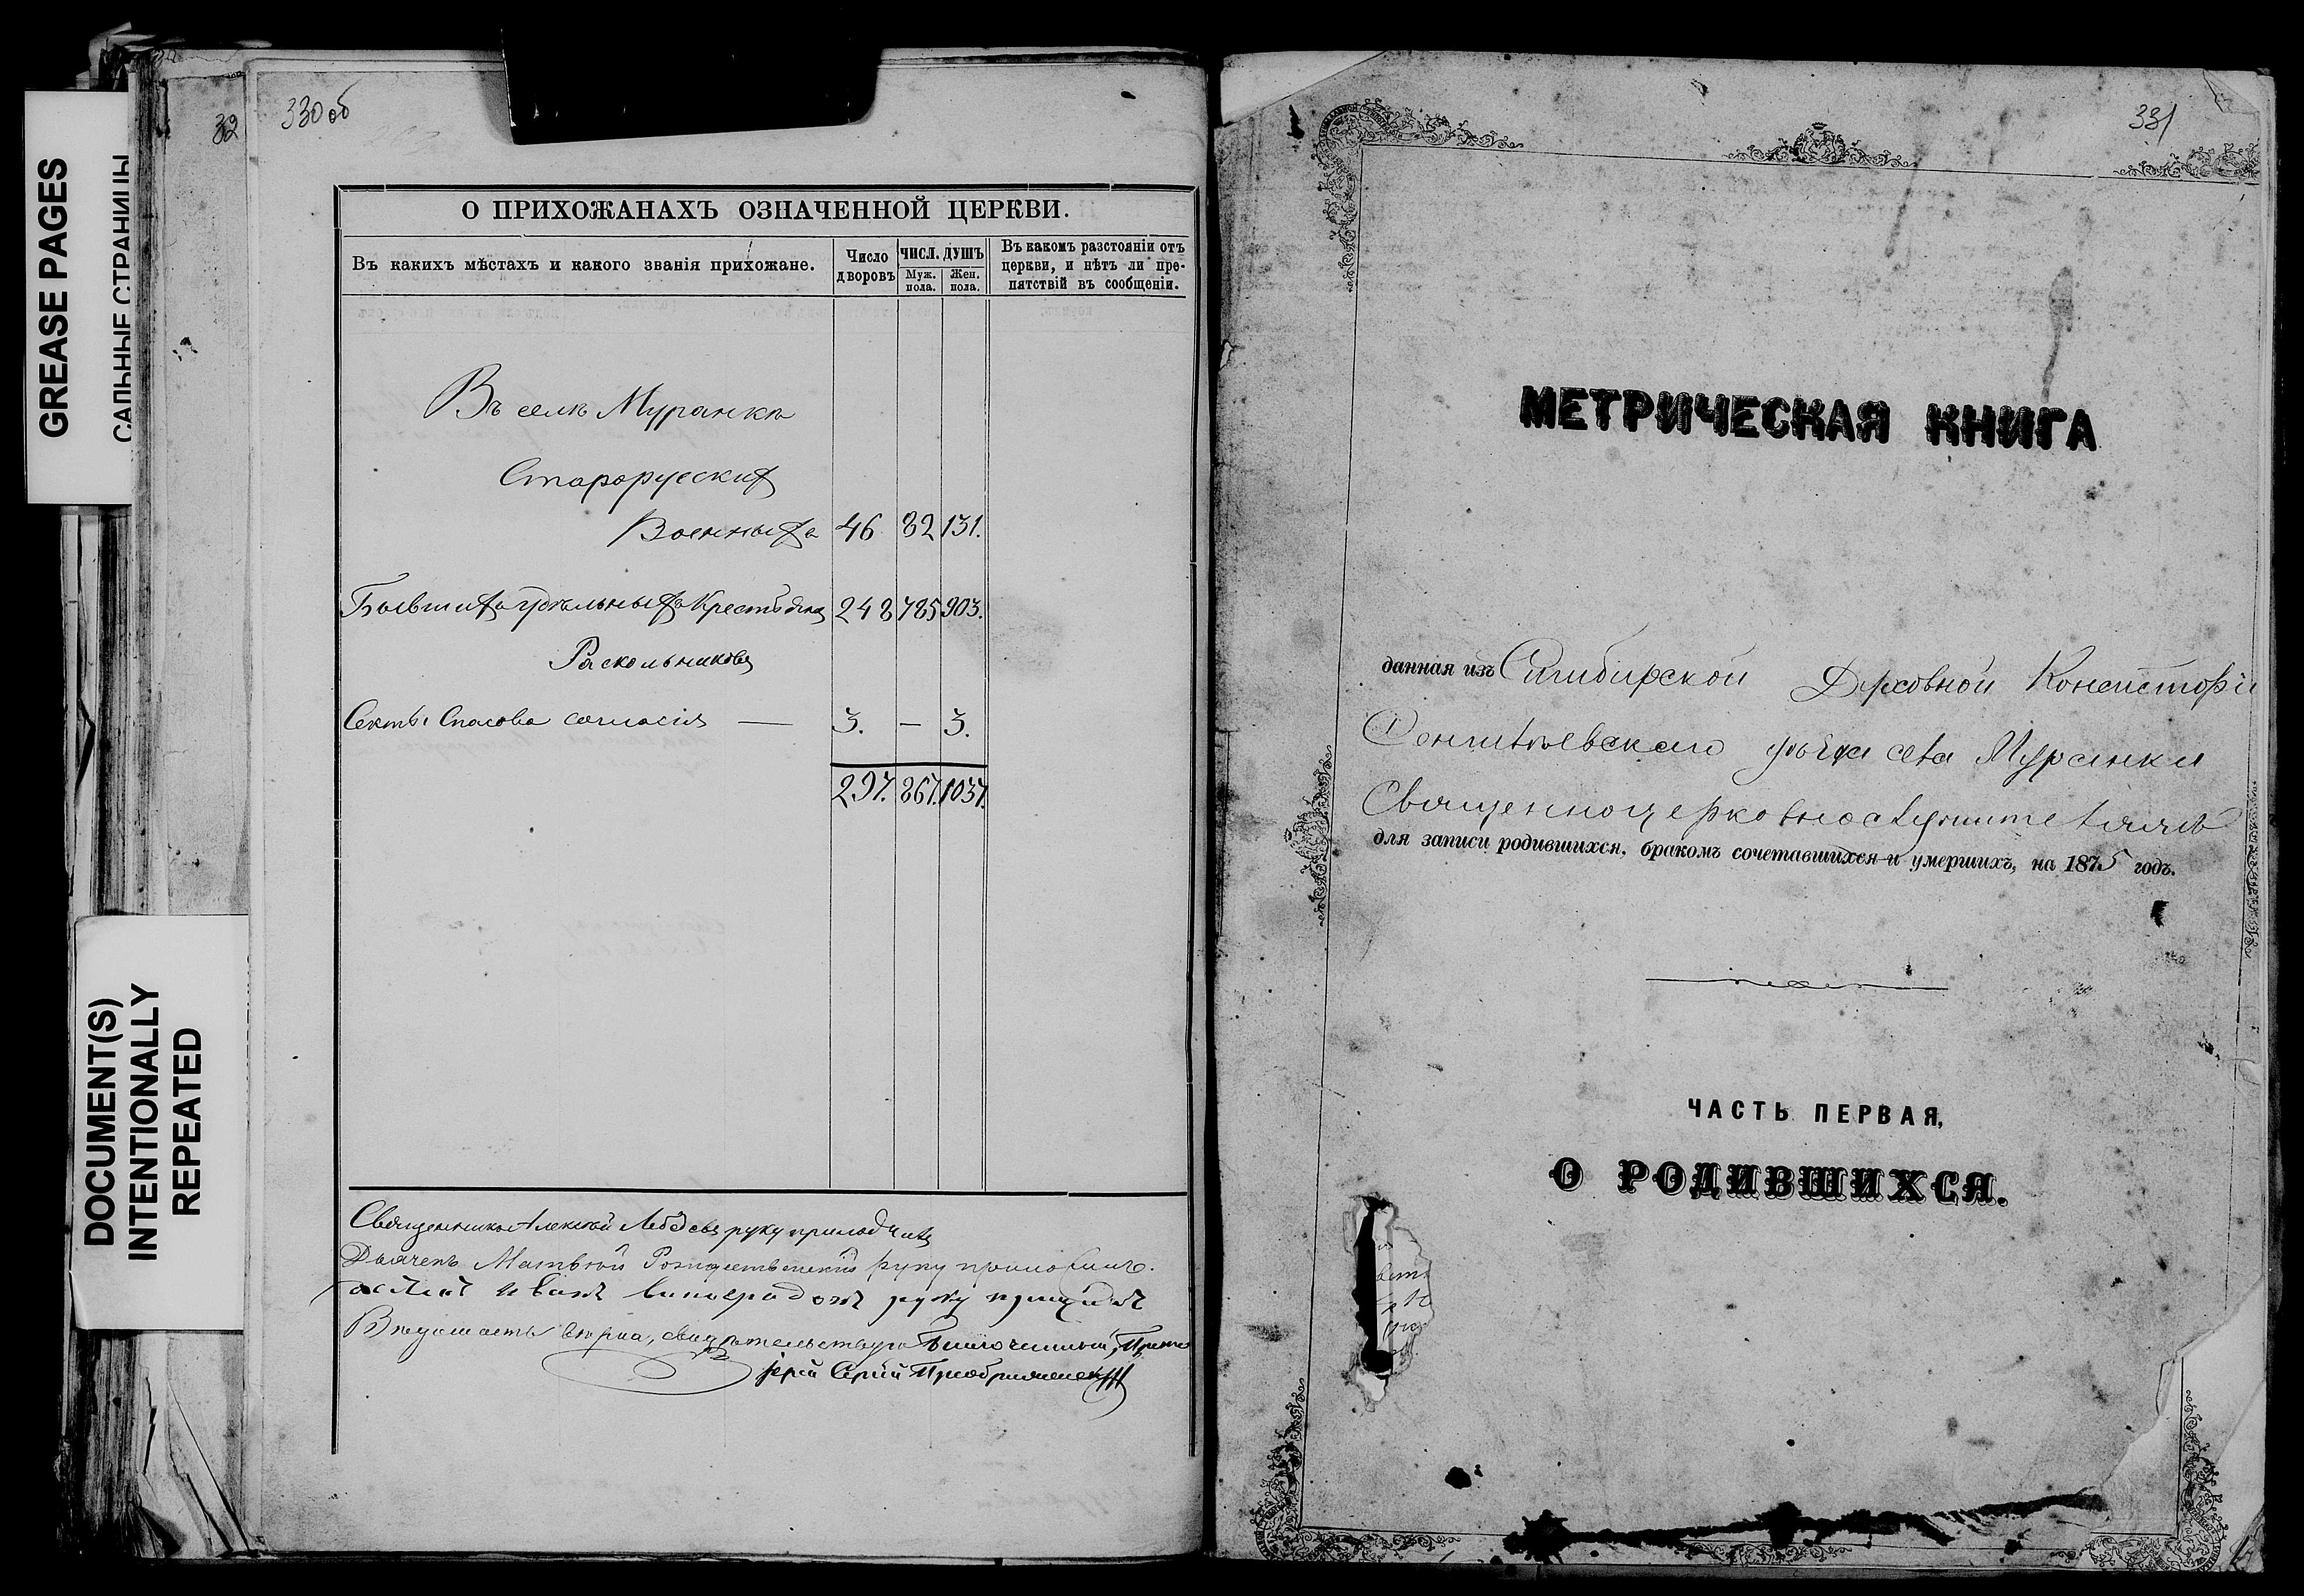 GREASE PAGES
САЛЬНЫЕ СТРАНИЦЫ
DOCUMENT(S)
INTENTIONALLY
REPEATED
32
330 об
О ПРИХОЖАНАХЪ ОЗНАЧЕННОЙ ЦЕРКВИ.
Въ какихъ мѣстахъ и какого званія прихожане.
Число дворовъ
ЧИСЛ. ДУШЪ
Муж. пола.
Жен. пола.
Въ какомъ разстояніи отъ церкви, и нѣтъ ли препятствій въ сообщеніи.
Въ селѣ Муранкѣ
Старорусских
Военныхъ 46 82 131.
Бывшихъ удѣльныхъ Крестьянъ 248 785 903.
Раскольниковъ
Секты Спасова согласія — 3. — 3.
297. 867. 1037.
Священникъ Алексѣй Лебедевъ руку приложилъ
Дьячекъ Матвѣй Рождественскій руку приложилъ.
Иванъ Виноградовъ руку
Вѣдомость вѣрна, свидѣтельствую Благочинный, Прото
іерей Сергій Преображенскій
331
МЕТРИЧЕСКАЯ КНИГА
данная изъ Симбирской Духовной Консисторіи
Сенгилѣевскаго уѣзда села Муранки
Священноцерковнослужителямъ
для записи родившихся, бракомъ сочетавшихся и умершихъ, на 1875 годъ.
ЧАСТЬ ПЕРВАЯ,
О РОДИВШИХСЯ.